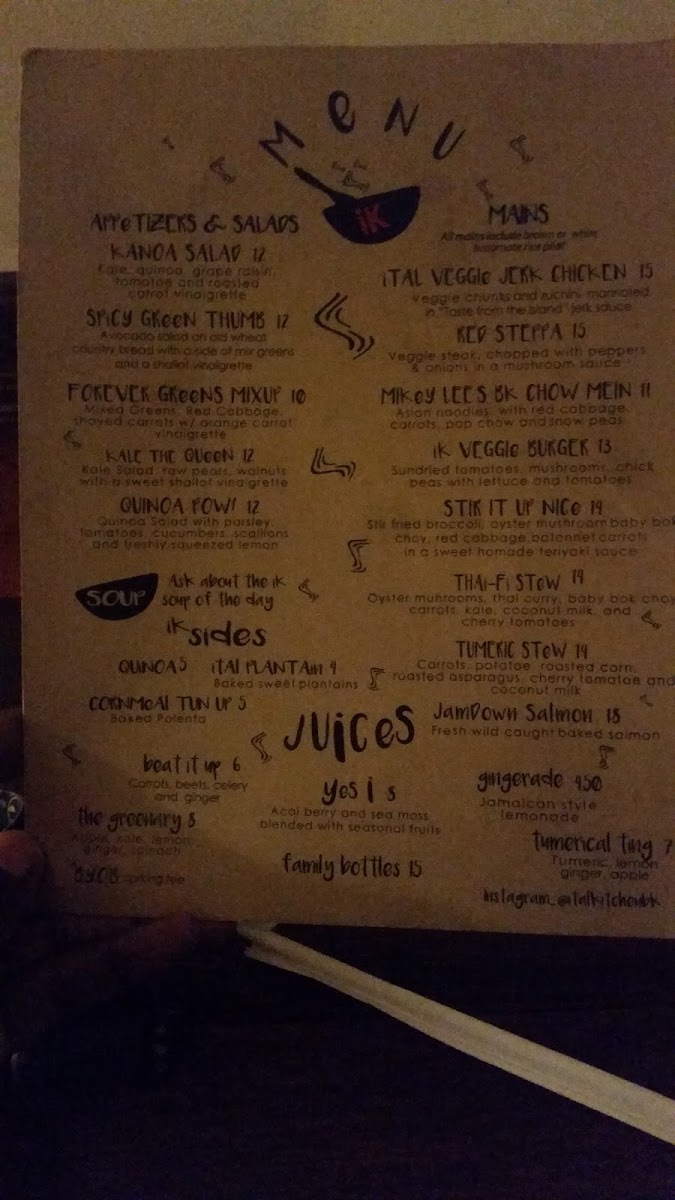 MeNU
iK
APPeTIZERS & SALADS
KANOA SALAD 12
Kale, quinoa, grape raisin,
tomatoe and roasted
carrot vinaigrette
SPiCY GReeN THUMB 12
Avocado salad on old wheat
country bread with a side of mix greens
and a shallot vinaigrette
FOREVER GReeNS MIXUP 10
Mixed Greens, Red Cabbage,
shaved carrots w/ orange carrot
vinaigrette
KALE THE QUeeN 12
Kale Salad, raw pears, walnuts
with a sweet shallot vinaigrette
QUINOA POW! 12
Quinoa Salad with parsley,
tomatoes, cucumbers, scallions
and freshly squeezed lemon
SOUP
Ask about the iK
soup of the day
iK sides
QUINOA 5 iTAl PLANTAiN 4
Baked sweet plantains
CORNMeAl TUN UP 5
Baked Polenta
MAINS
All mains include brown or white
homemade rice pilaf
iTAL VEGGIe JERK CHICKEN 15
Veggie chunks and zuchini marinated
in "Taste from the Island" jerk sauce
RED STEPPA 15
Veggie steak, chopped with peppers
& onions in a mushroom sauce
MIKeY LEES BK CHOW MEIN 11
Asian noodles, with red cabbage,
carrots, pop chow and snow peas
iK VEGGIe BURGER 13
Sundried tomatoes, mushrooms, chick
peas with lettuce and tomatoes
STIR IT UP NICe 14
Stir fried broccoli, oyster mushroom baby bok
choy, red cabbage, batonnet carrots
in a sweet homade teriyaki sauce
THAI-FI STeW 14
Oyster muhrooms, thai curry, baby bok choy
carrots, kale, coconut milk, and
cherry tomatoes
TUMERIC STeW 14
Carrots, potatoe, roasted corn,
roasted asparagus, cherry tomatoe and
coconut milk
JamDown Salmon 18
Fresh wild caught baked salmon
JUiCeS
beat it up 6
Carrots, beets, celery
and ginger
the greenary 8
Apple, kale, lemon
ginger, spinach
BYOB corking fee
yes i 8
Acai berry and sea moss
blended with seasonal fruits
family bottles 15
gingerade 4.50
Jamaican style
lemonade
tumerical ting 7
Tumeric, lemon
ginger, apple
instagram_@italkitchenbk